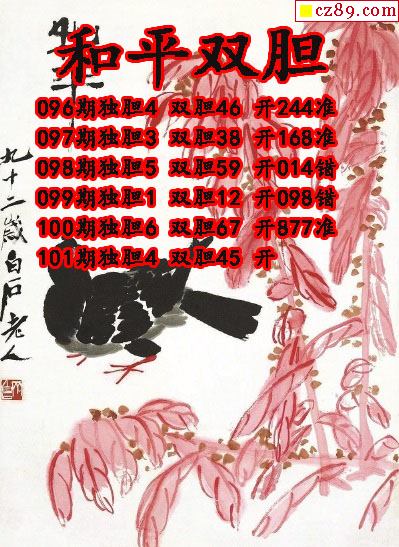 cz89.com
和平双胆
096期独胆4 双胆46 开244准
097期独胆3 双胆38 开168准
098期独胆5 双胆59 开014错
099期独胆1 双胆12 开098错
100期独胆6 双胆67 开877准
101期独胆4 双胆45 开
九十二岁白石老人